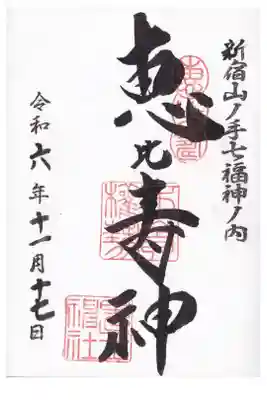 新宿山ノ手七福神ノ内
恵比寿神
令和六年十一月十七日